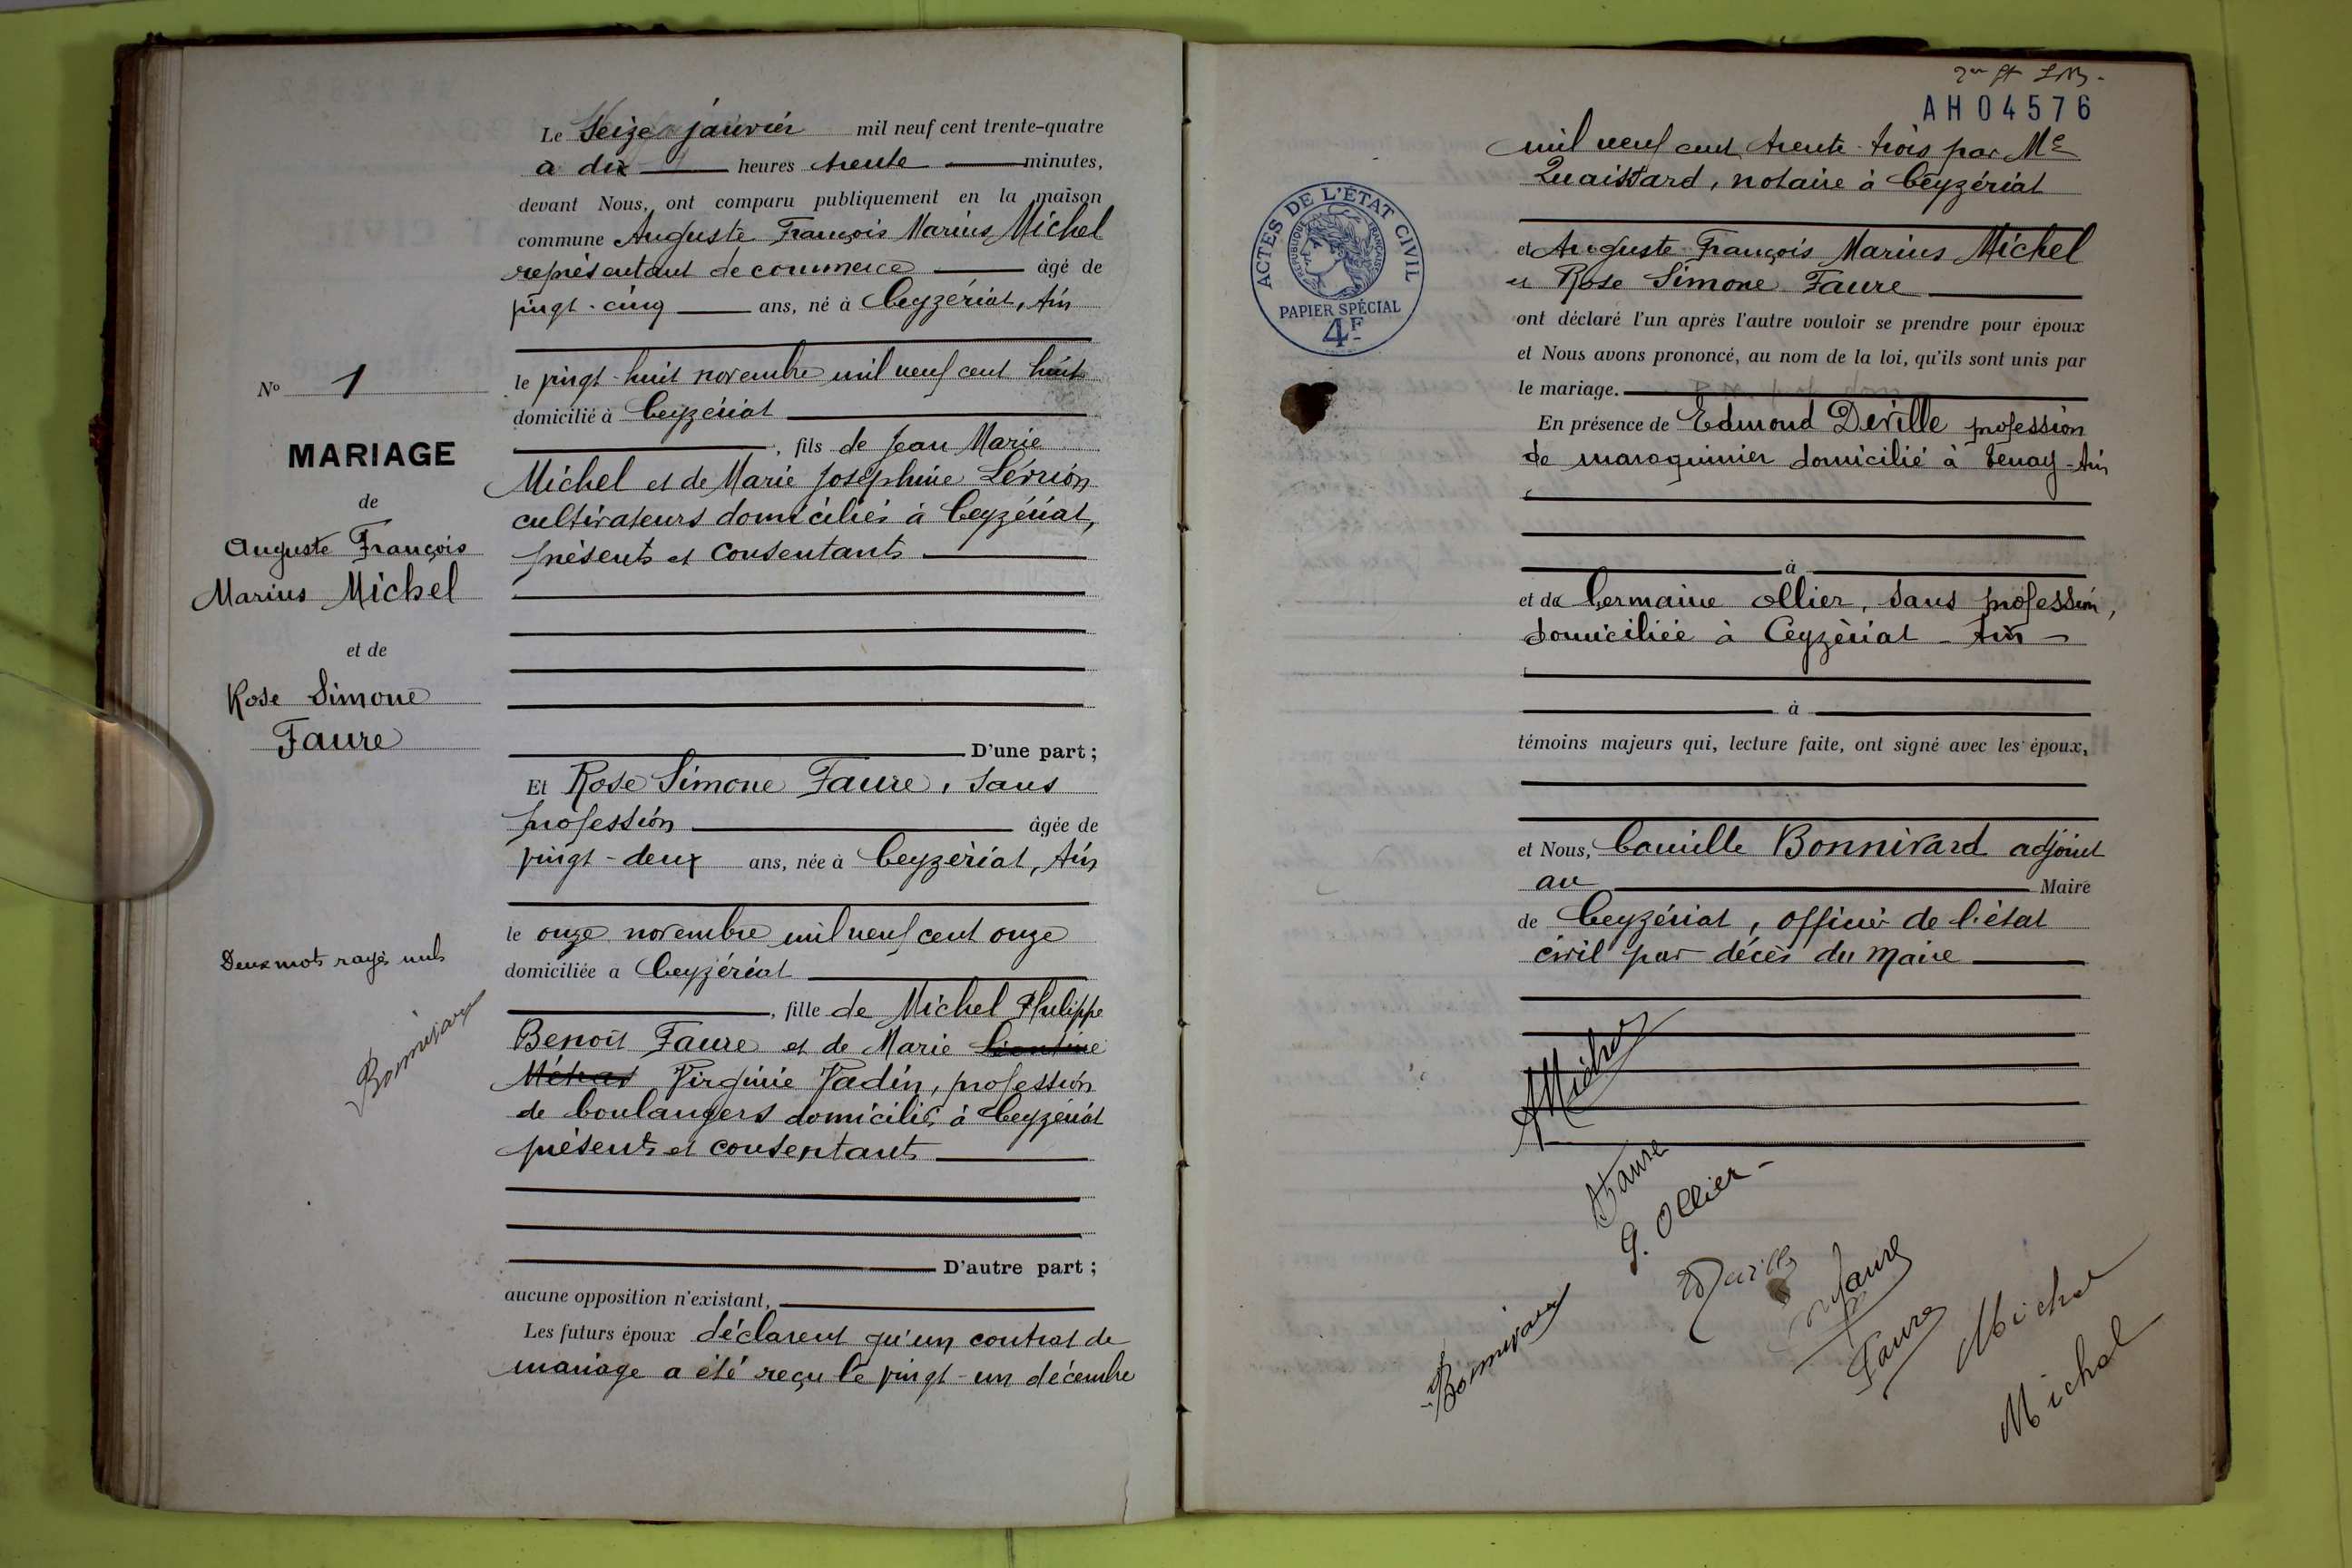 Le Seize janvier mil neuf cent trente-quatre
à dix heures trente minutes,
devant Nous, ont comparu publiquement en la maison
commune Auguste François Marius Michel
représentant de commerce âgé de
vingt-cinq ans, né à Ceyzériat, Ain
le vingt-huit novembre mil neuf cent huit
domicilié à Ceyzériat
, fils de Jean Marie
Michel et de Marie Joséphine
cultivateurs domiciliés à Ceyzériat,
présents et consentants
D'une part ;
Et Rose Simone Faure, sans
profession âgée de
vingt-deux ans, née à Ceyzériat, Ain
le onze novembre mil neuf cent onze
domiciliée à Ceyzériat
, fille de Michel Philippe
Benoît Faure et de Marie
Virginie Vadin, profession
de boulangers domiciliés à Ceyzériat
présents et consentants
D'autre part ;
aucune opposition n'existant,
Les futurs époux déclarent qu'un contrat de
mariage a été reçu le vingt-un décembre
No 1
MARIAGE
de
Auguste François
Marius Michel
et de
Rose Simone
Faure
Deux mots rayés nuls
Bonnivard
AH04576
mil neuf cent trente-trois par Me
notaire à Ceyzériat
et Auguste François Marius Michel
et Rose Simone Faure
ont déclaré l'un après l'autre vouloir se prendre pour époux
et Nous avons prononcé, au nom de la loi, qu'ils sont unis par
le mariage.
En présence de Edmond Deville profession
de maroquinier domicilié à Tenay-Ain
à
et de Germaine Ollier, sans profession,
domiciliée à Ceyzériat - Ain -
à
témoins majeurs qui, lecture faite, ont signé avec les époux,
et Nous, Camille Bonnivard adjoint
au Maire
de Ceyzériat, officier de l'état
civil par décès du Maire
ACTES DE L'ÉTAT CIVIL
RÉPUBLIQUE FRANÇAISE
PAPIER SPÉCIAL
4F
AMichel
SFaure
G. Ollier -
EDeville
Faure
Bonnivard
Faure
Michel
Michel